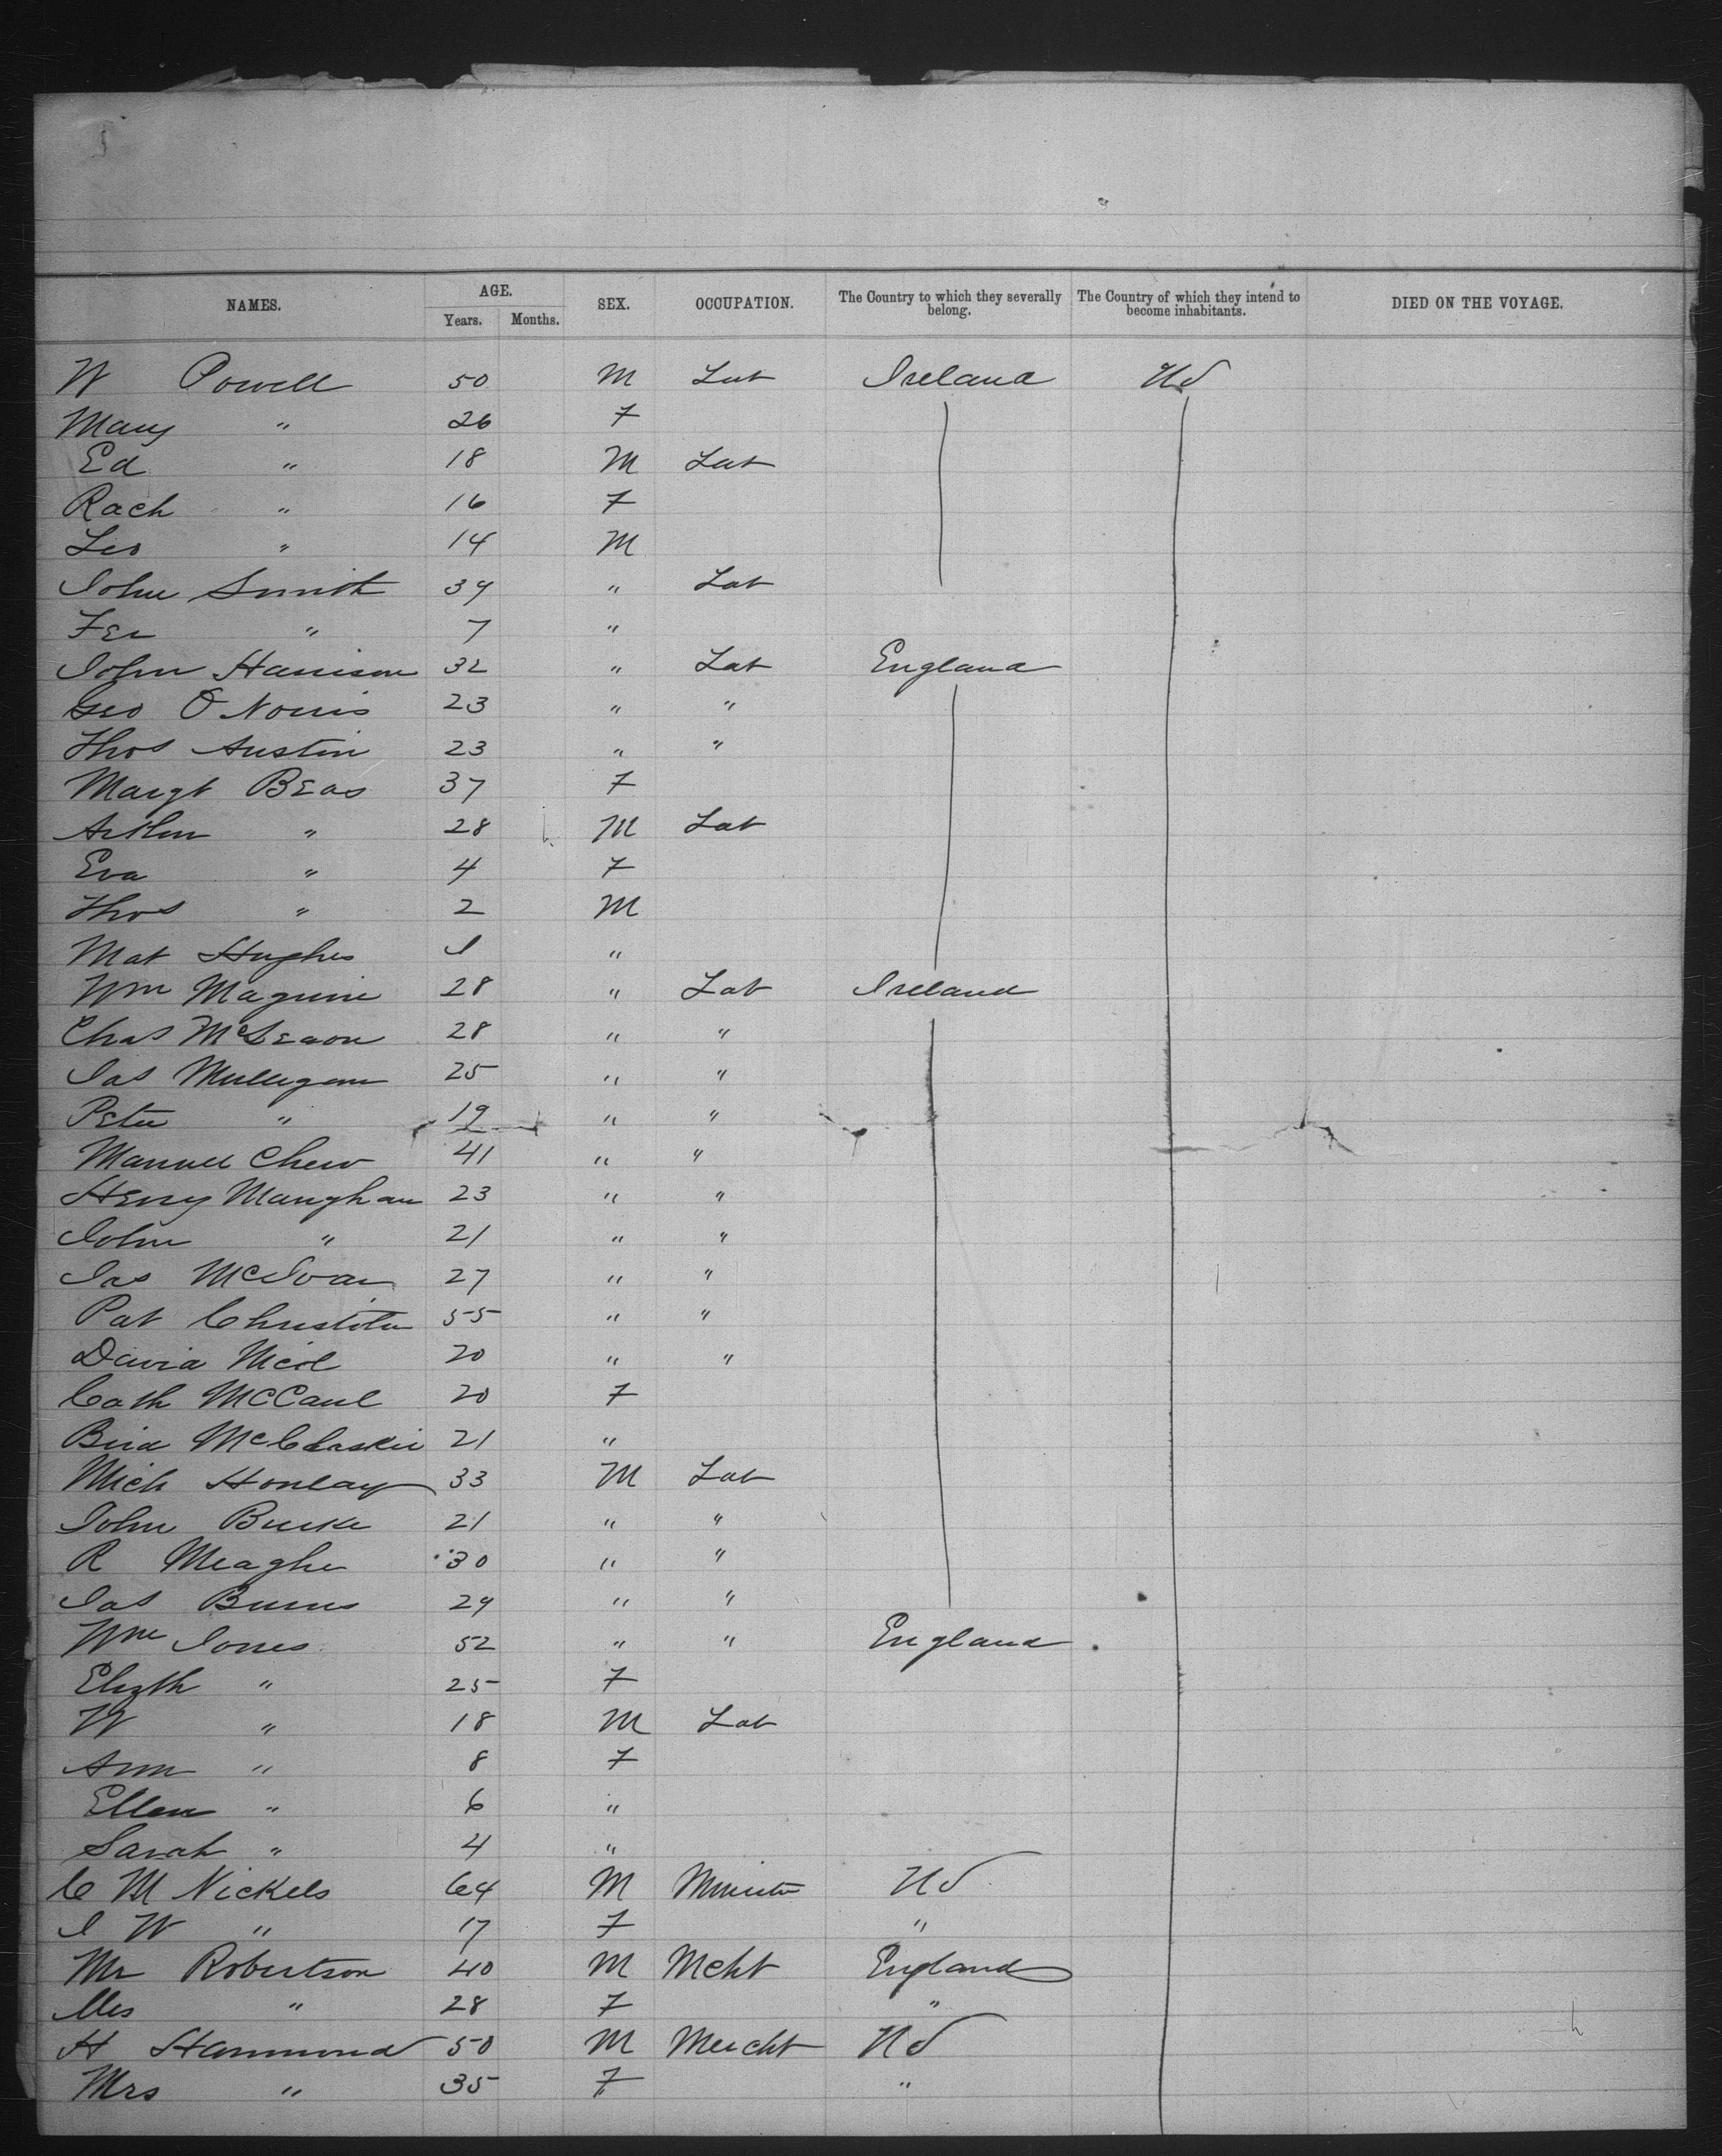 NAMES. AGE. SEX. OCCUPATION. The Country to which they severally belong. The Country of which they intend to become inhabitants. DIED ON THE VOYAGE.
Years. Months.
W Powell 50 M Lab Ireland US
Mary " 26 F
Ed " 18 M Lab
Rach " 16 F
Leo " 14 M
John Smith 39 " Lab
" 7 "
John Harrison 32 " Lab England
Geo O Norris 23 " "
Thos Austin 23 " "
Margt Beas 37 F
Arthur " 28 M Lab
Eva " 4 F
Thos " 2 M
Mat Hughes 1 "
Wm Maguire 28 " Lab Ireland
Chas 28 " "
Jas Mulligan 25 " "
Peter " 19 " "
Manuel Chew 41 " "
Henry Maughan 23 " "
John " 21 " "
Jas 27 " "
Pat 55 " "
David Nicol 20 " "
Cath McCaul 20 F
21 "
Mich 33 M Lab
John Burke 21 " "
R Meagher 30 " "
Jas Burns 29 " "
Wm Jones 52 " " England
Elizth " 25 F
W " 18 M Lab
Ann " 8 F
Ellen " 6 "
Sarah " 4 "
C M Nickels 64 M Minister US
J W " 17 F "
Mr Robertson 40 M Mcht England
Mrs " 28 F "
H Hammond 50 M Mercht US
Mrs " 35 F "